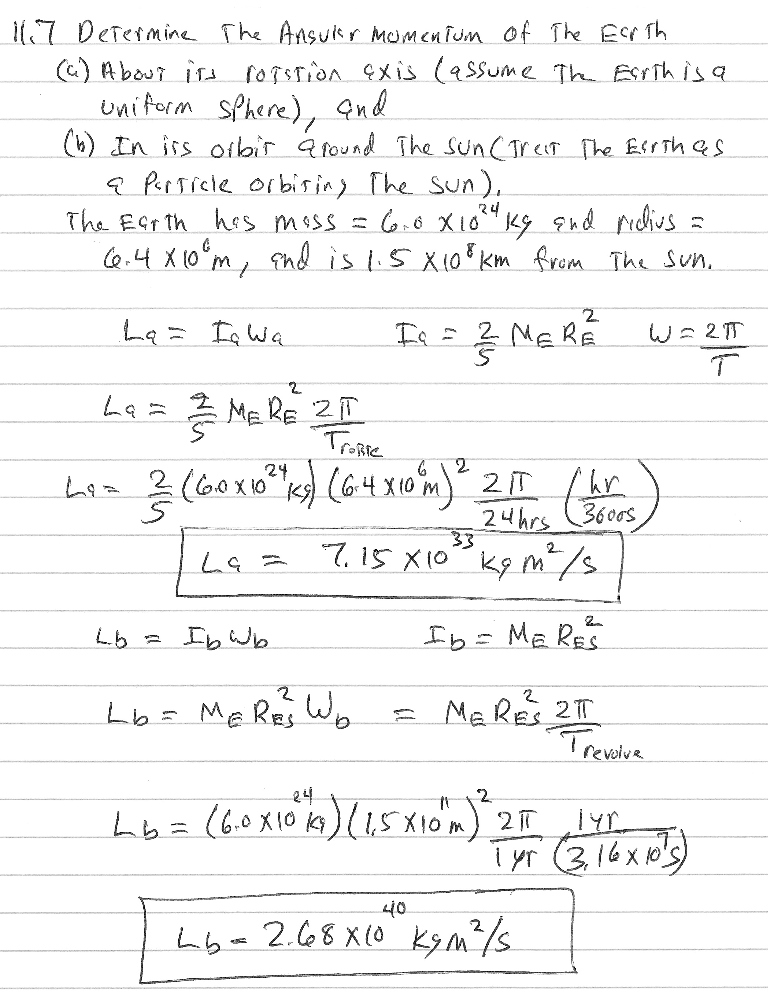 11.7 Determine The Angular Momentum of The Earth
(a) About its rotation axis (assume The Earth is a
uniform sphere), and
(b) In its orbit around The sun (Treat The Earth as
a Particle orbiting The sun).
The Earth has mass = 6.0 X10²⁴ kg and radius =
6.4 X10⁶ m, and is 1.5 X10⁸ km from The sun.
La = Ia Wa Ia = 2/5 M_E R_E² W = 2π/T
La = 2/5 M_E R_E² 2π/T_rotate
La = 2/5 (6.0 x10²⁴ kg) (6.4 X10⁶ m)² 2π/24hrs (hr/3600s)
La = 7.15 X10³³ kg m²/s
Lb = Ib Wb Ib = M_E R_ES²
Lb = M_E R_ES² Wb = M_E R_ES² 2π/T_revolve
Lb = (6.0 X10²⁴ kg) (1.5 X10¹¹ m)² 2π/1 yr 1yr/(3.16 x 10⁷ s)
Lb = 2.68 X10⁴⁰ kg m²/s